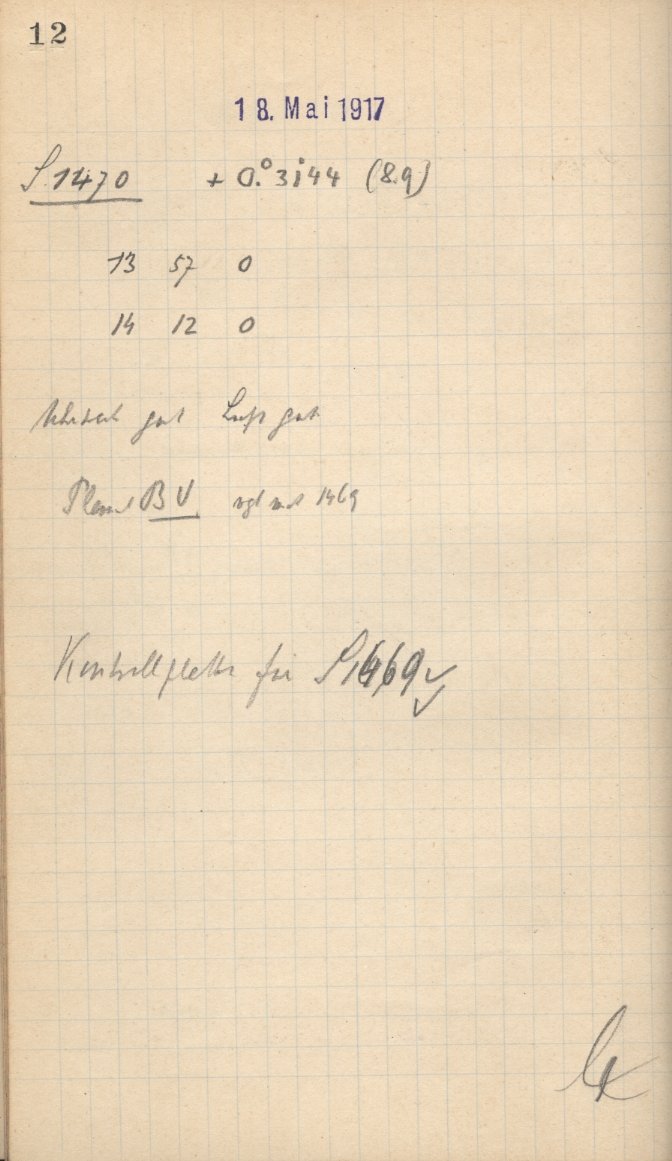 12
18. Mai 1917
S.1470 + 0.°3144 (8.9)
13 57 0
14 12 0
gut Luft gut
Planet BV vgl mit 1469
Kontrollplatte für S1469 ✓
✓